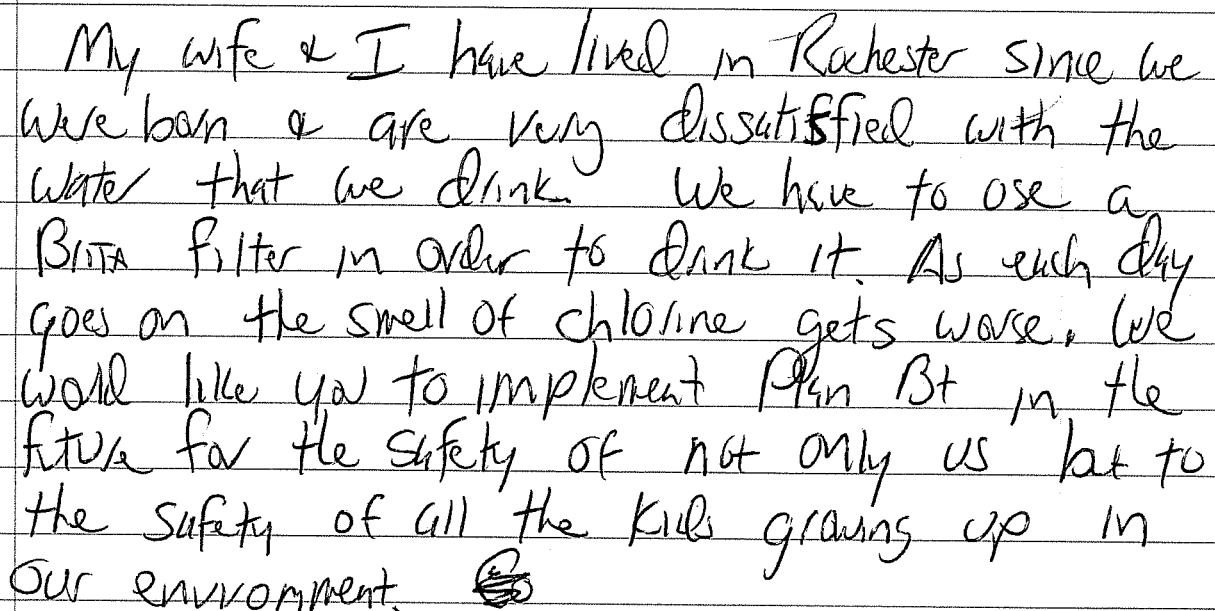 My wife & I have lived in Rochester since we
were born & are very dissatisfied with the
water that we drink. We have to use a
BRITA filter in order to drink it. As each day
goes on the smell of chlorine gets worse. We
would like you to implement Plan B+ in the
future for the safety of not only us but to
the safety of all the kids growing up in
our environment.